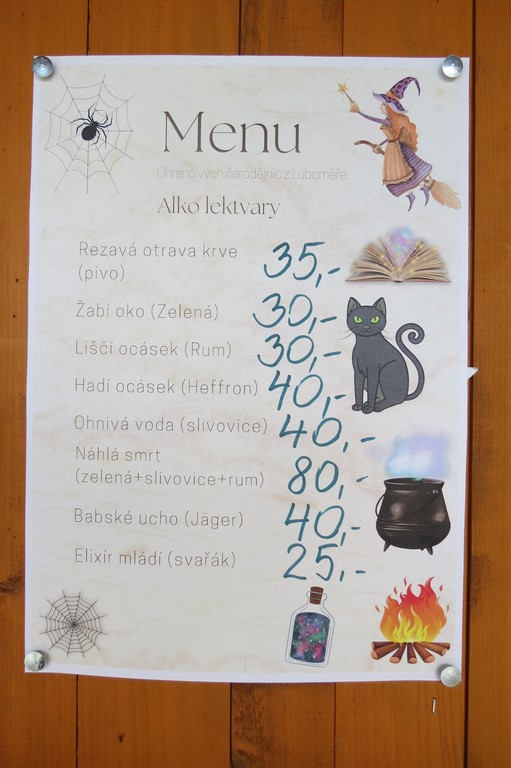 Menu
Uhrančivých čarodějnic z Luboměře
Alko lektvary
Rezavá otrava krve 35,-
(pivo)
Žabí oko (Zelená) 30,-
Liščí ocásek (Rum) 30,-
Hadí ocásek (Heffron) 40,-
Ohnivá voda (slivovice) 40,-
Náhlá smrt
(zelená+slivovice+rum) 80,-
Babské ucho (Jäger) 40,-
Elixír mládí (svařák) 25,-